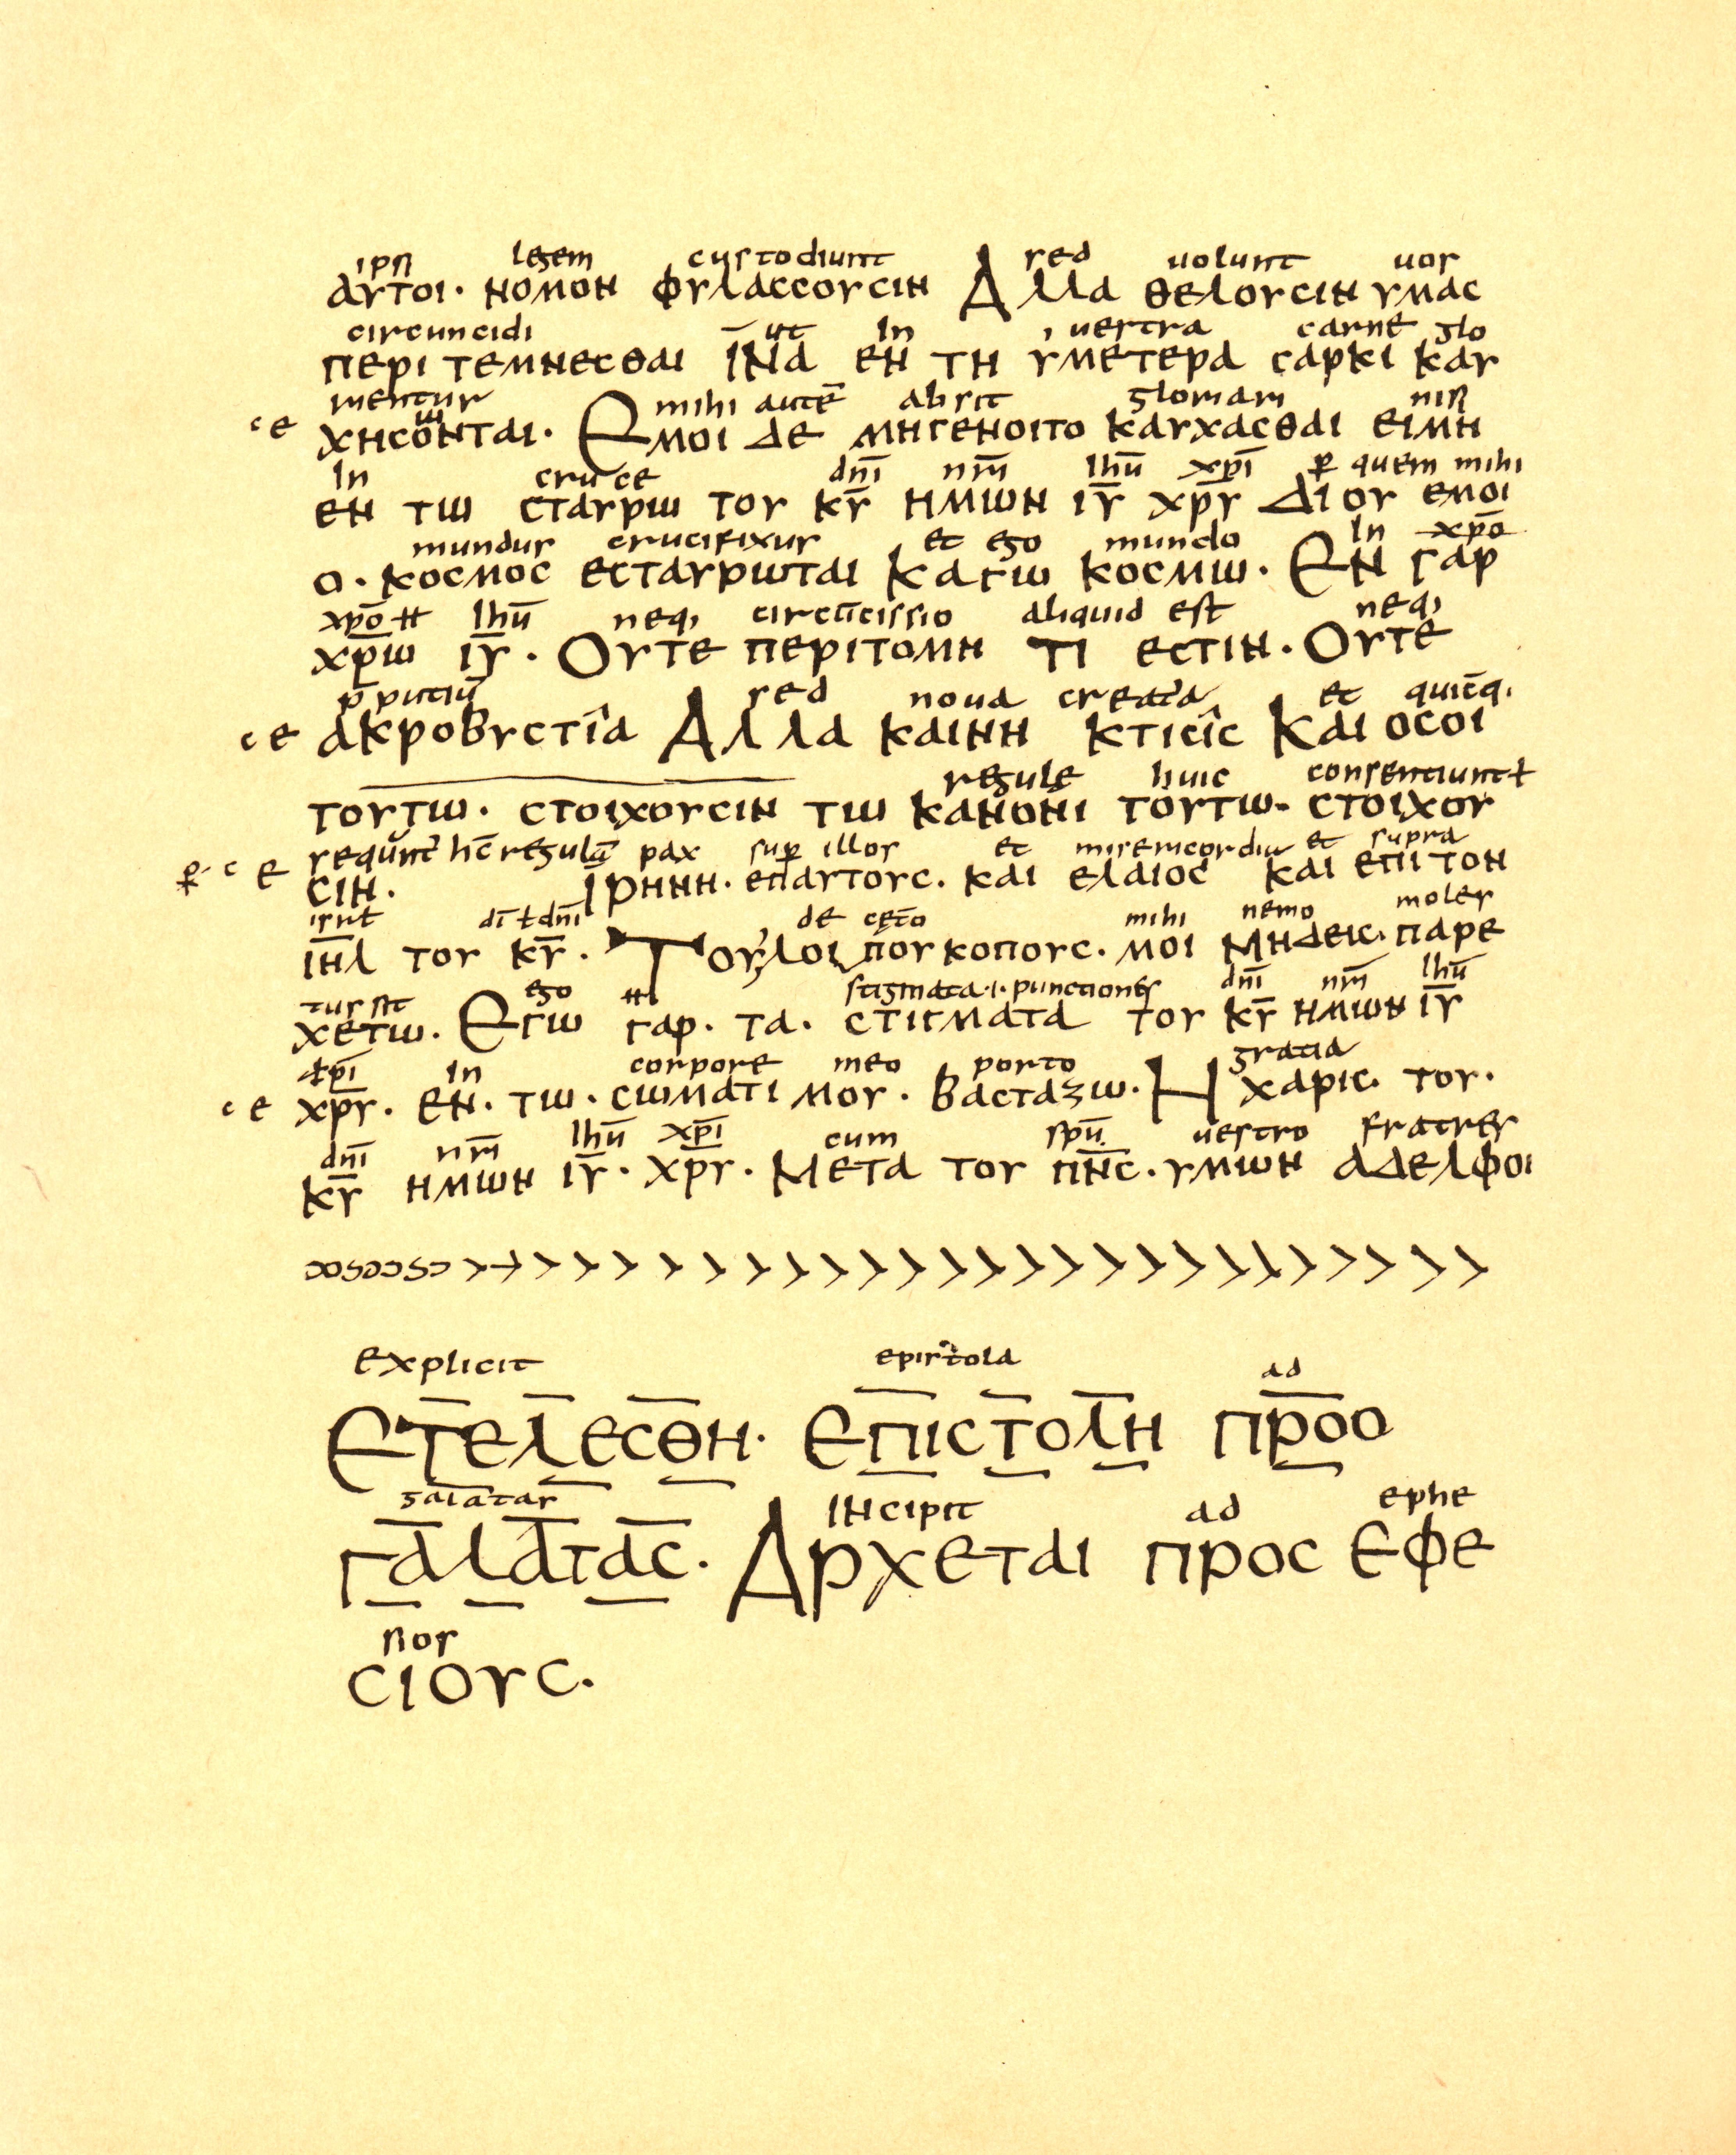 ipsi legem custodiunt sed uolunt uos
ΑΥΤΟΙ· ΝΟΜΟΝ ΦΥΛΑCCΟΥCΙΝ ΑΛΛΑ ΘΕΛΟΥCΙΝ ΥΜΑC
circuncidi ut In uestra carne glo
ΠΕΡΙ ΤΕΜΝΕCΘΑΙ ΙΝΑ ΕΝ ΤΗ ΥΜΕΤΕΡΑ CΑΡΚΙ ΚΑΥ
mihi autē absit gloriari nisi
c e ΧΗCΟΝΤΑΙ· ΕΜΟΙ ΔΕ ΜΗΓΕΝΟΙΤΟ ΚΑΥΧΑCΘΑΙ ΕΙΜΗ
In cruce dn̄i nr̄i Ihū xp̄i ꝑ quem mihi
ΕΝ ΤΩ CΤΑΥΡΩ ΤΟΥ Κ̄Ῡ ΗΜΩΝ ῙῩ ΧΡ̄Υ ΔΙ ΟΥ ΕΜΟΙ
mundus crucifixus et ego mundo In xp̄o
Ο· ΚΟCΜΟC ΕCΤΑΥΡΩΤΑΙ ΚΑΓΩ ΚΟCΜΩ· ΕΝ ΓΑΡ
xp̄o Ihū neq; circūcissio aliquid est neq;
ΧΡ̄Ω ῙῩ· ΟΥΤΕ ΠΕΡΙΤΟΜΗ ΤΙ ΕCΤΙΝ· ΟΥΤΕ
p̄putiū sed noua creatā et quicq;
c e ΑΚΡΟΒΥCΤΙΑ ΑΛΛΑ ΚΑΙΝΗ ΚΤΙCΙC ΚΑΙ ΟCΟΙ
regule huic consentiunt ł
ΤΟΥΤΩ· CΤΟΙΧΟΥCΙΝ ΤΩ ΚΑΝΟΝΙ ΤΟΥΤΩ· CΤΟΙΧΟΥ
hc̄ regulā pax suꝑ illos et misericordia et supra
ꝑ· c e CΙΝ· ΙΡΗΝΗ· ΕΠΑΥΤΟΥC· ΚΑΙ ΕΛΑΙΟC ΚΑΙ ΕΠΙ ΤΟΝ
dī ł dn̄i de cet̄o mihi nemo moles
ῙΗ̄Λ ΤΟΥ Κ̄Ῡ· ΤΟΥΛΟΙΠΟΥ ΚΟΠΟΥC· ΜΟΙ ΜΗΔΕΙC· ΠΑΡΕ
tus sit ego stigmata ·i· punctiones dn̄i nr̄i Ihū
ΧΕΤΩ· ΕΓΩ ΓΑΡ· ΤΑ· CΤΙΓΜΑΤΑ ΤΟΥ Κ̄Ῡ ΗΜΩΝ ῙῩ
xp̄i In corpore meo porto gratia
c e ΧΡ̄Υ· ΕΝ· ΤΩ· CΩΜΑΤΙ ΜΟΥ· ΒΑCΤΑΖΩ· Η ΧΑΡΙC· ΤΟΥ·
dn̄i nr̄i Ihū xp̄i cum spū uestro fratres
Κ̄Ῡ ΗΜΩΝ ῙῩ· ΧΡ̄Υ· ΜΕΤΑ ΤΟΥ Π̄Ν̄C· ΥΜΩΝ ΑΔΕΛΦΟΙ
explicit epistola ad
ΕΤΕΛΕCΘΗ· ΕΠΙCΤΟΛΗ ΠΡΟO
galatas Incipit ad ephe
ΓΑΛΑΤΑC· ΑΡΧΕΤΑΙ ΠΡΟC ΕΦΕ
sios
CΙΟΥC·